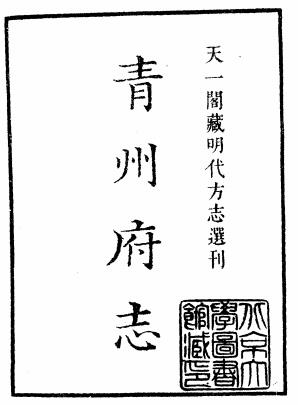 天一閣藏明代方志選刊
青州府志
北京大
學圖書
館藏印